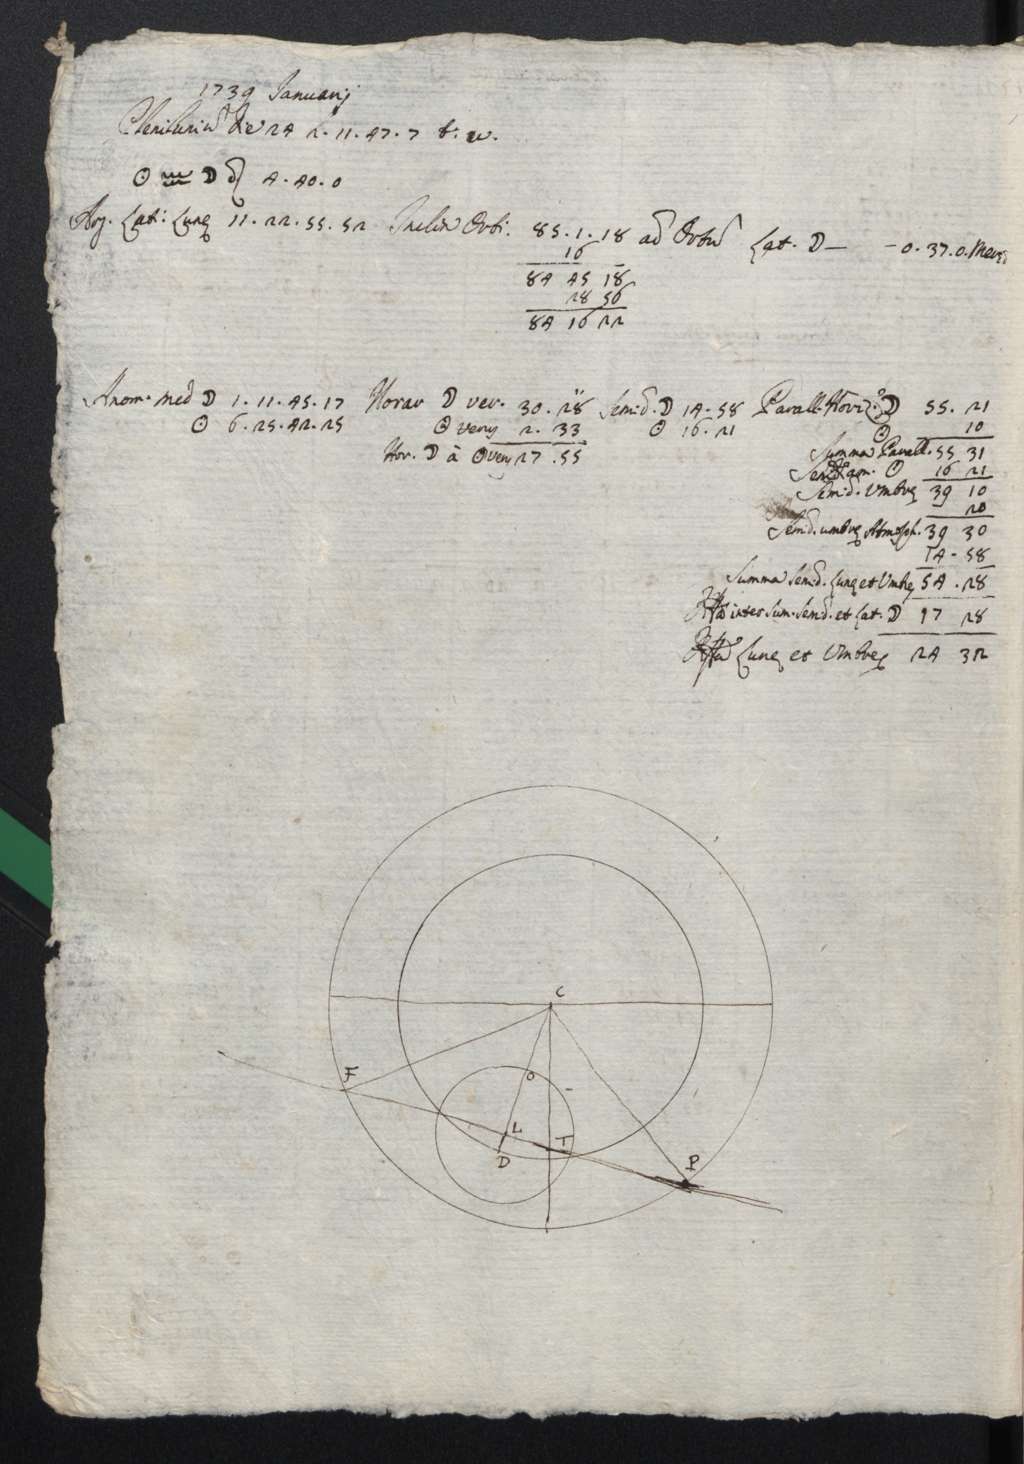 1739 Januarij
Pleniluniũ Die 24 2. 11. 47. 7 t. v.
☉ ♒ ☽ ♌ 4. 40. 0
Arg. Lati: Lunę 11. 22. 55. 52 Inclin Orbi. 85. 1. 18 ad Orbũ Lat. ☽ — - 0. 37. 0. Merid
16
84 45 18
28 56
84 16 22
Anom. med ☽ 1. 11. 45. 17 Horar ☽ ver. 30. 28 Semid. ☽ 14. 58 Parall. Horiz. ☽ 55. 21
☉ 6. 25. 42. 25 ☉ very 2. 33 ☉ 16. 21 ☉ 10
Hor. ☽ à ☉ very 27. 55 Summa Parall. 55 31
Semidiam. ☉ 16 21
Semid. Umbrę 39 10
20
Semid. umbrę Atmosph. 39 30
14. 58
Summa Semid. Lunę et Umbrę 54. 28
Dffa inter Sum. Semid. et Lat. ☽ 17 28
Dffa Lunę et Umbrę 24 32
C
F
O
L
T
D
P